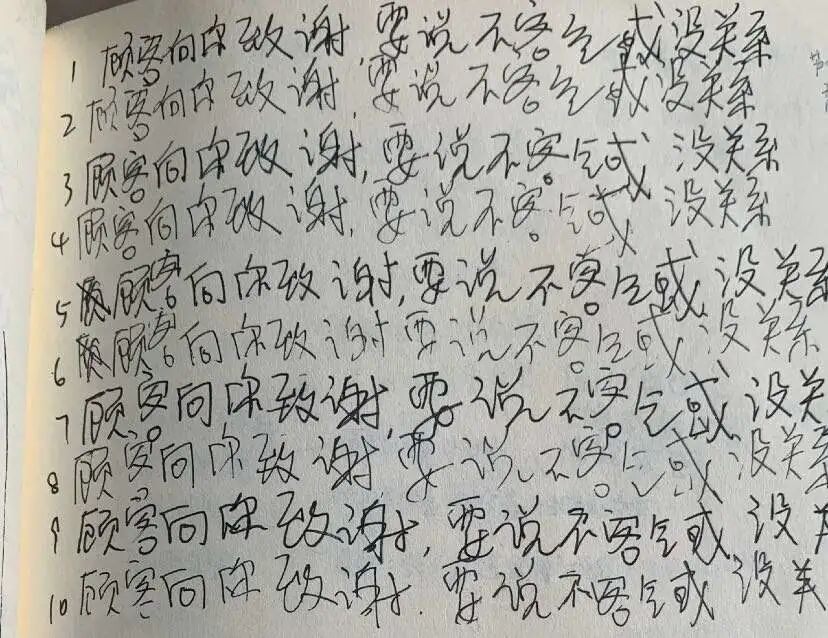 1 顾客向你致谢,要说不客气或没关系
2 顾客向你致谢,要说不客气或没关系
3 顾客向你致谢,要说不客气或没关系
4 顾客向你致谢,要说不客气或没关系
5 顾客向你致谢,要说不客气或没关系
6 顾客向你致谢要说不客气或没关系
7 顾客向你致谢,要说不客气或没关
8 顾客向你致谢,要说不客气或没关系
9 顾客向你致谢,要说不客气或没
10 顾客向你致谢.要说不客气或没关